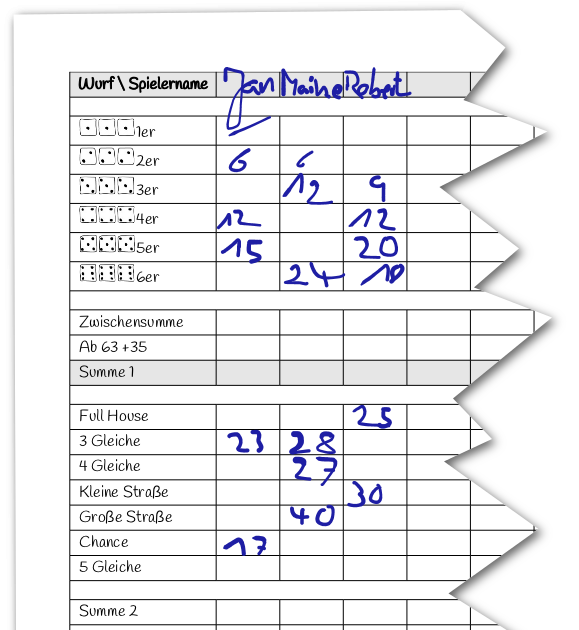 Wurf \ Spielername Jan Maihe Robert
1er
2er 6 6
3er 12 9
4er 12 12
5er 15 20
6er 24
Zwischensumme
Ab 63 +35
Summe 1
Full House 25
3 Gleiche 23 28
4 Gleiche 27
Kleine Straße 30
Große Straße 40
Chance 17
5 Gleiche
Summe 2